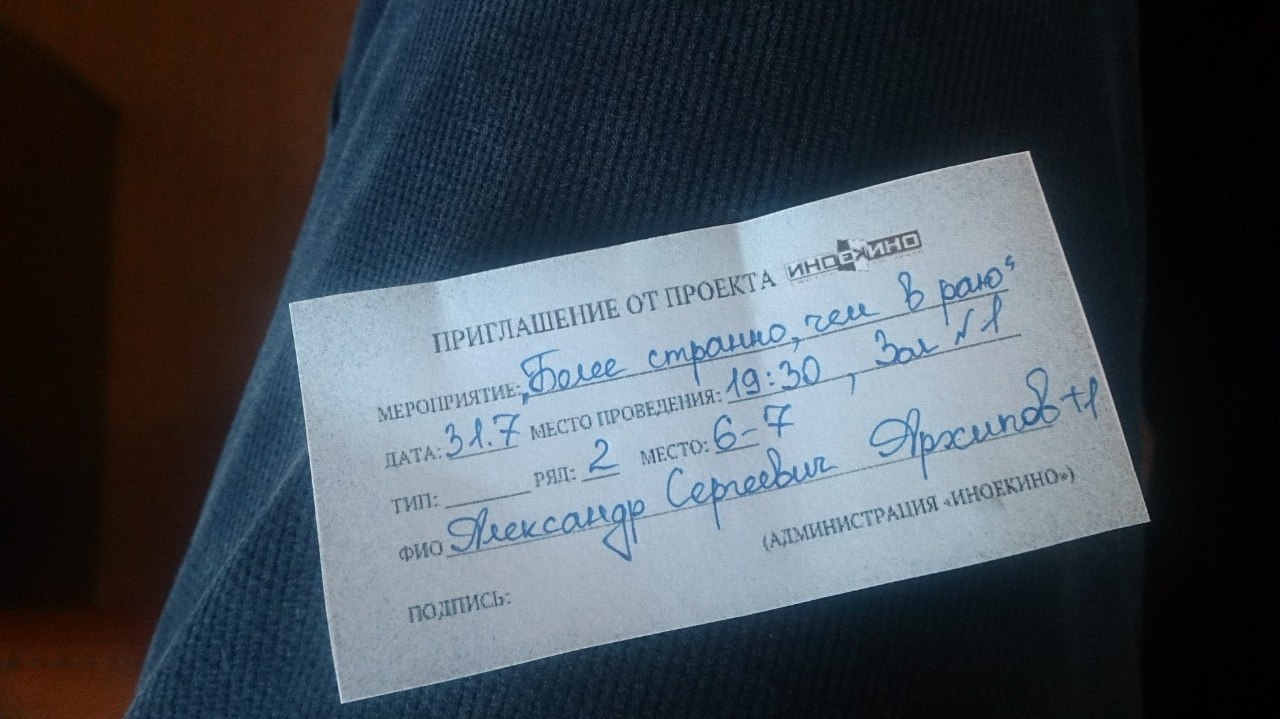 ПРИГЛАШЕНИЕ ОТ ПРОЕКТА ИНОЕКИНО
МЕРОПРИЯТИЕ: „Более странно, чем в раю“
ДАТА: 31.7 МЕСТО ПРОВЕДЕНИЯ: 19:30, Зал №1
ТИП: ______ РЯД: 2 МЕСТО: 6-7
ФИО Александр Сергеевич Архипов +1
(АДМИНИСТРАЦИЯ «ИНОЕКИНО»)
ПОДПИСЬ: